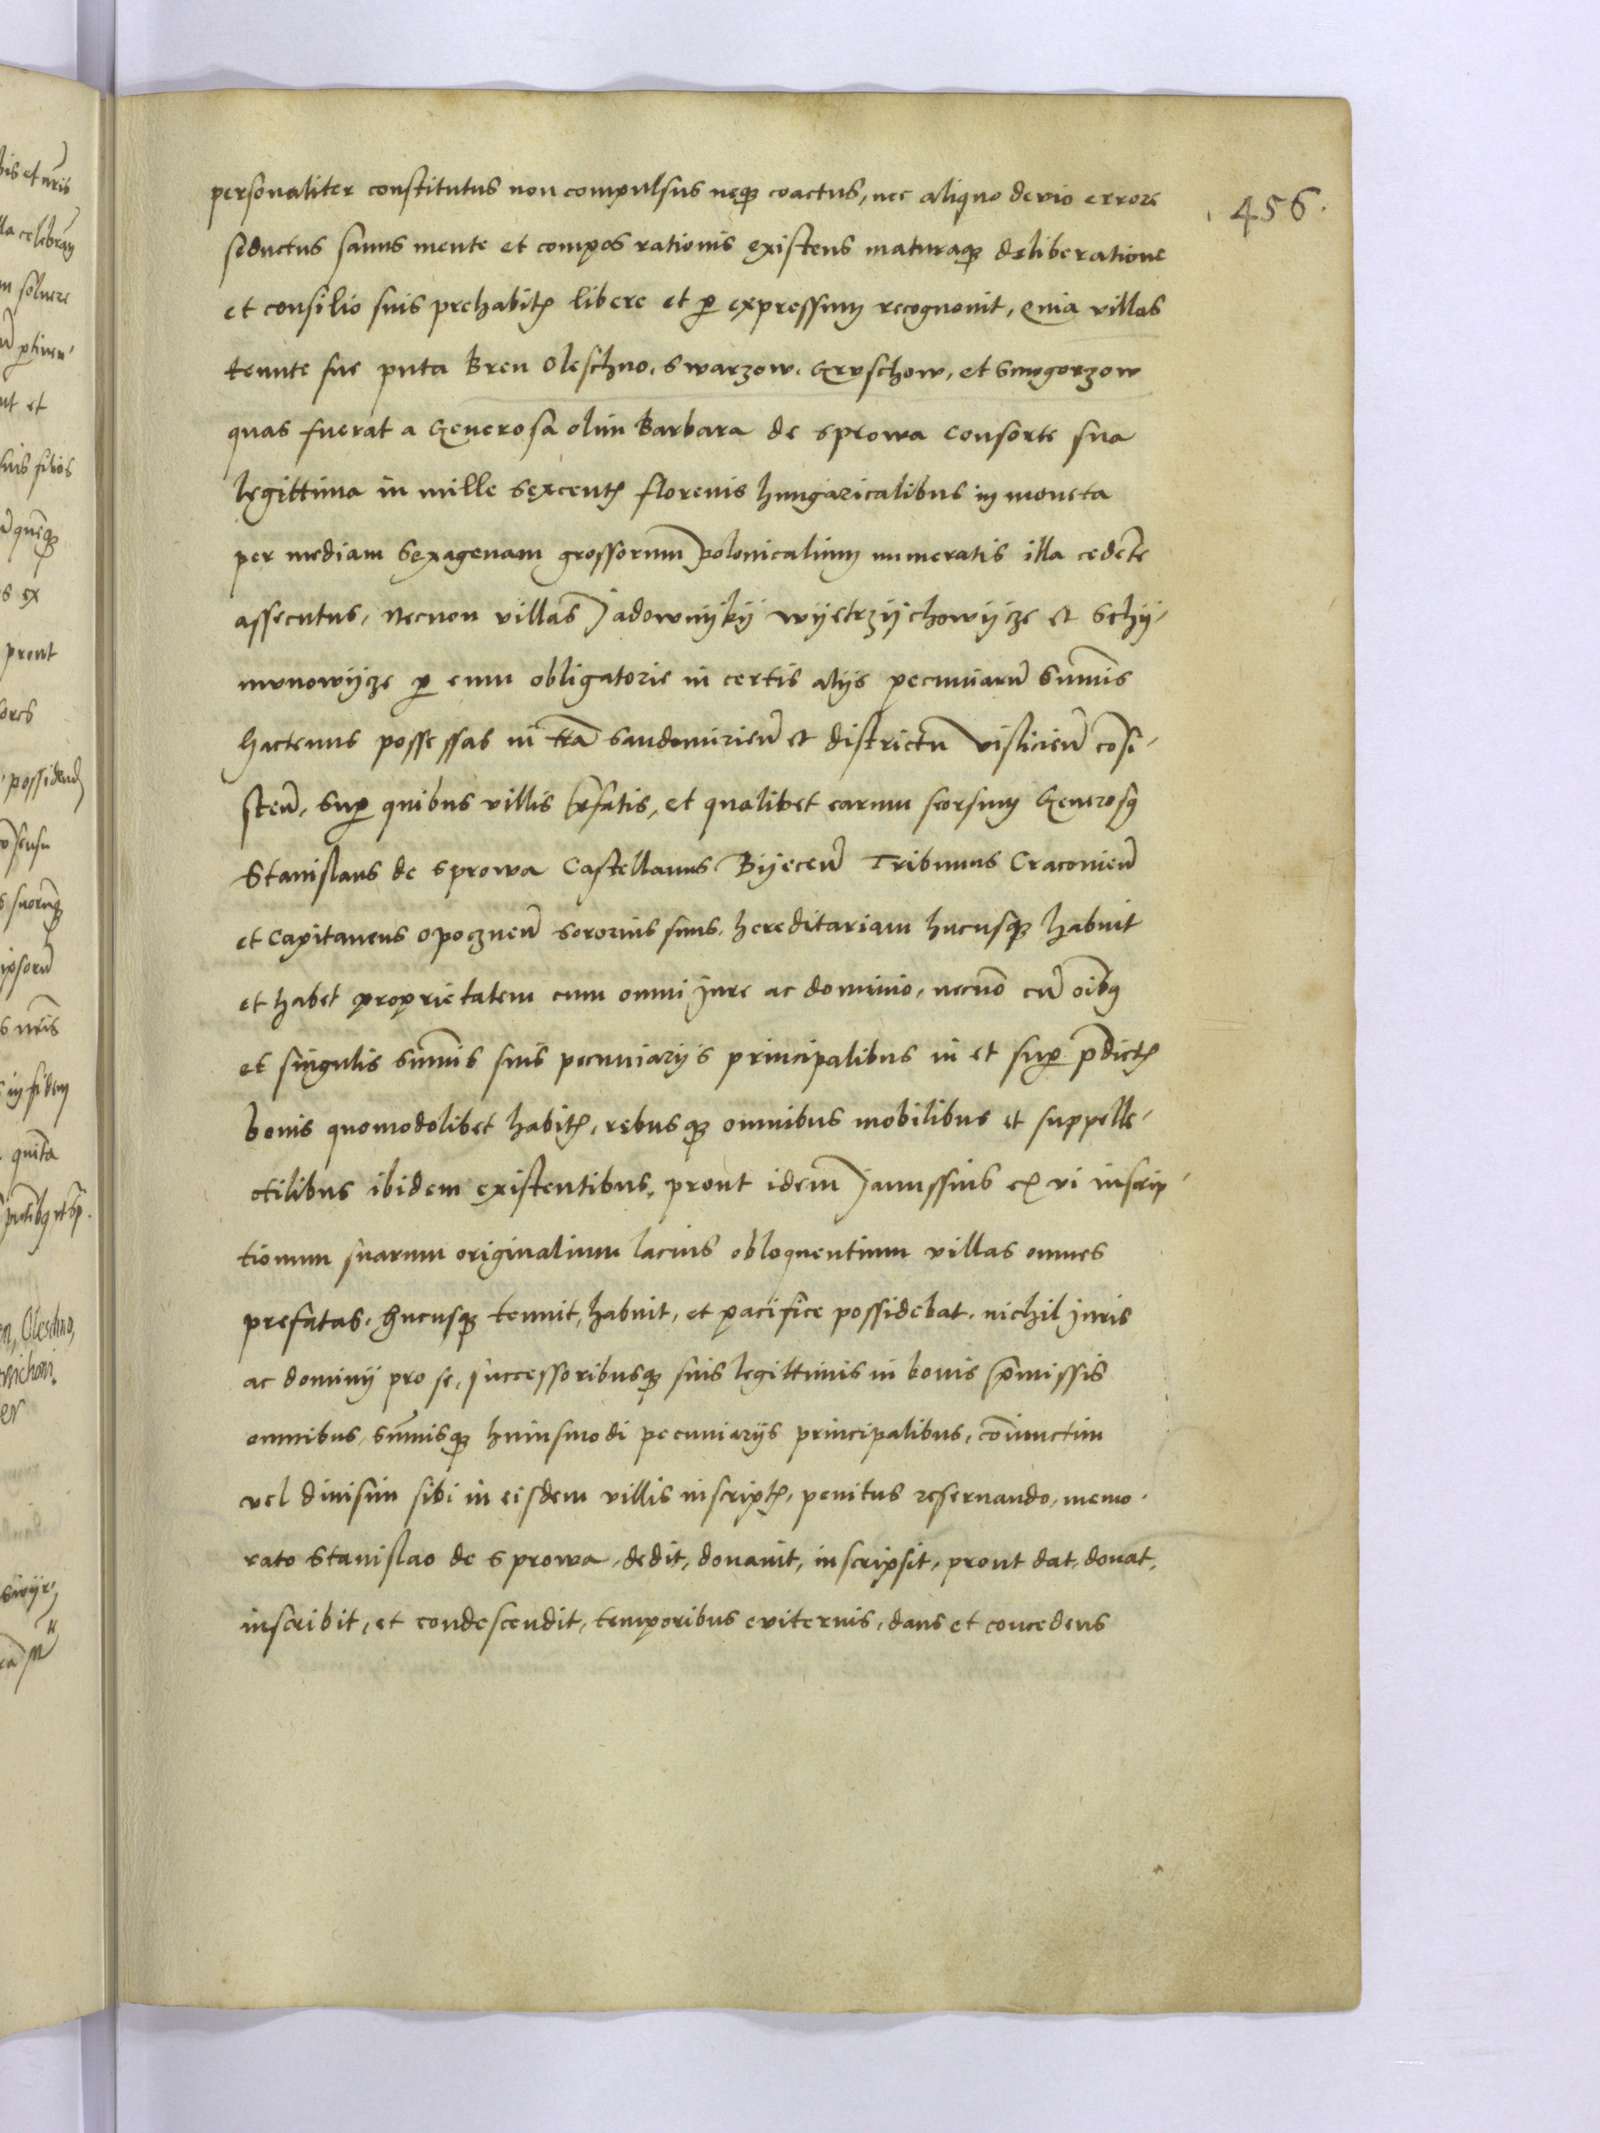 456.
personaliter constitutus non compulsus neqꝫ coactus, nec aliquo devio errore
seductus sanus mente et compos rationis existens maturaqꝫ deliberatione
et consilio suis prehabitꝭ libere et ꝑ expressum recognovit, Quia villas
tenute sue puta Bren Oleschno, Swarzow, Gruschow, et Smogorzow
quas fuerat a Generosa olim Barbara de Sprowa Consorte sua
legittima in mille Sexcentꝭ florenis hungaricalibus in moneta
per mediam Sexagenam grossorum polonicalium numeratis illa cedẽte
assecutus, Necnon villas Jadownyky Wyetrzychowycze et Schy-
monowycze ꝑ eum obligatorie in certis alijs pecuniarũ Sum̃is
hactenus possessas in tr̃a Sandomirieñ et districtu Visliciẽn cõsi-
steñ, Suꝑ quibus villis p̃fatis, et qualibet earum seorsum Generosꝯ
Stanislaus de Sprowa Castellanus Byeceñ Tribunus Cracovieñ
et Capitaneus Opoczneñ Sororius suus, hereditariam hucusqꝫ habuit
et habet proprietatem cum omni Jure ac dominio, necnõ cũ oĩbꝯ
et singulis Sum̃is suis pecuniarijs principalibus in et suꝑ p̃dictꝭ
bonis quomodolibet habitꝭ, rebusqꝫ omnibus mobilibus et suppelle-
ctilibus ibidem existentibus, prout idem Janussius ex vi inscrip-
tionum suarum originalium lacius obloquentium villas omnes
prefatas, Hucusqꝫ tenuit, habuit, et pacifice possidebat, nichil Juris
ac dominij pro se, successoribusqꝫ suis legittimis in bonis p̃missis
omnibus, Sum̃isqꝫ huiusmodi pecuniarijs principalibus, cõiunctim
vel divisim sibi in eisdem villis inscriptꝭ, penitus reservando, memo-
rato Stanislao de Sprowa, dedit, donavit, inscripsit, prout dat, donat,
inscribit, et condescendit, temporibus eviternis, dans et concedens